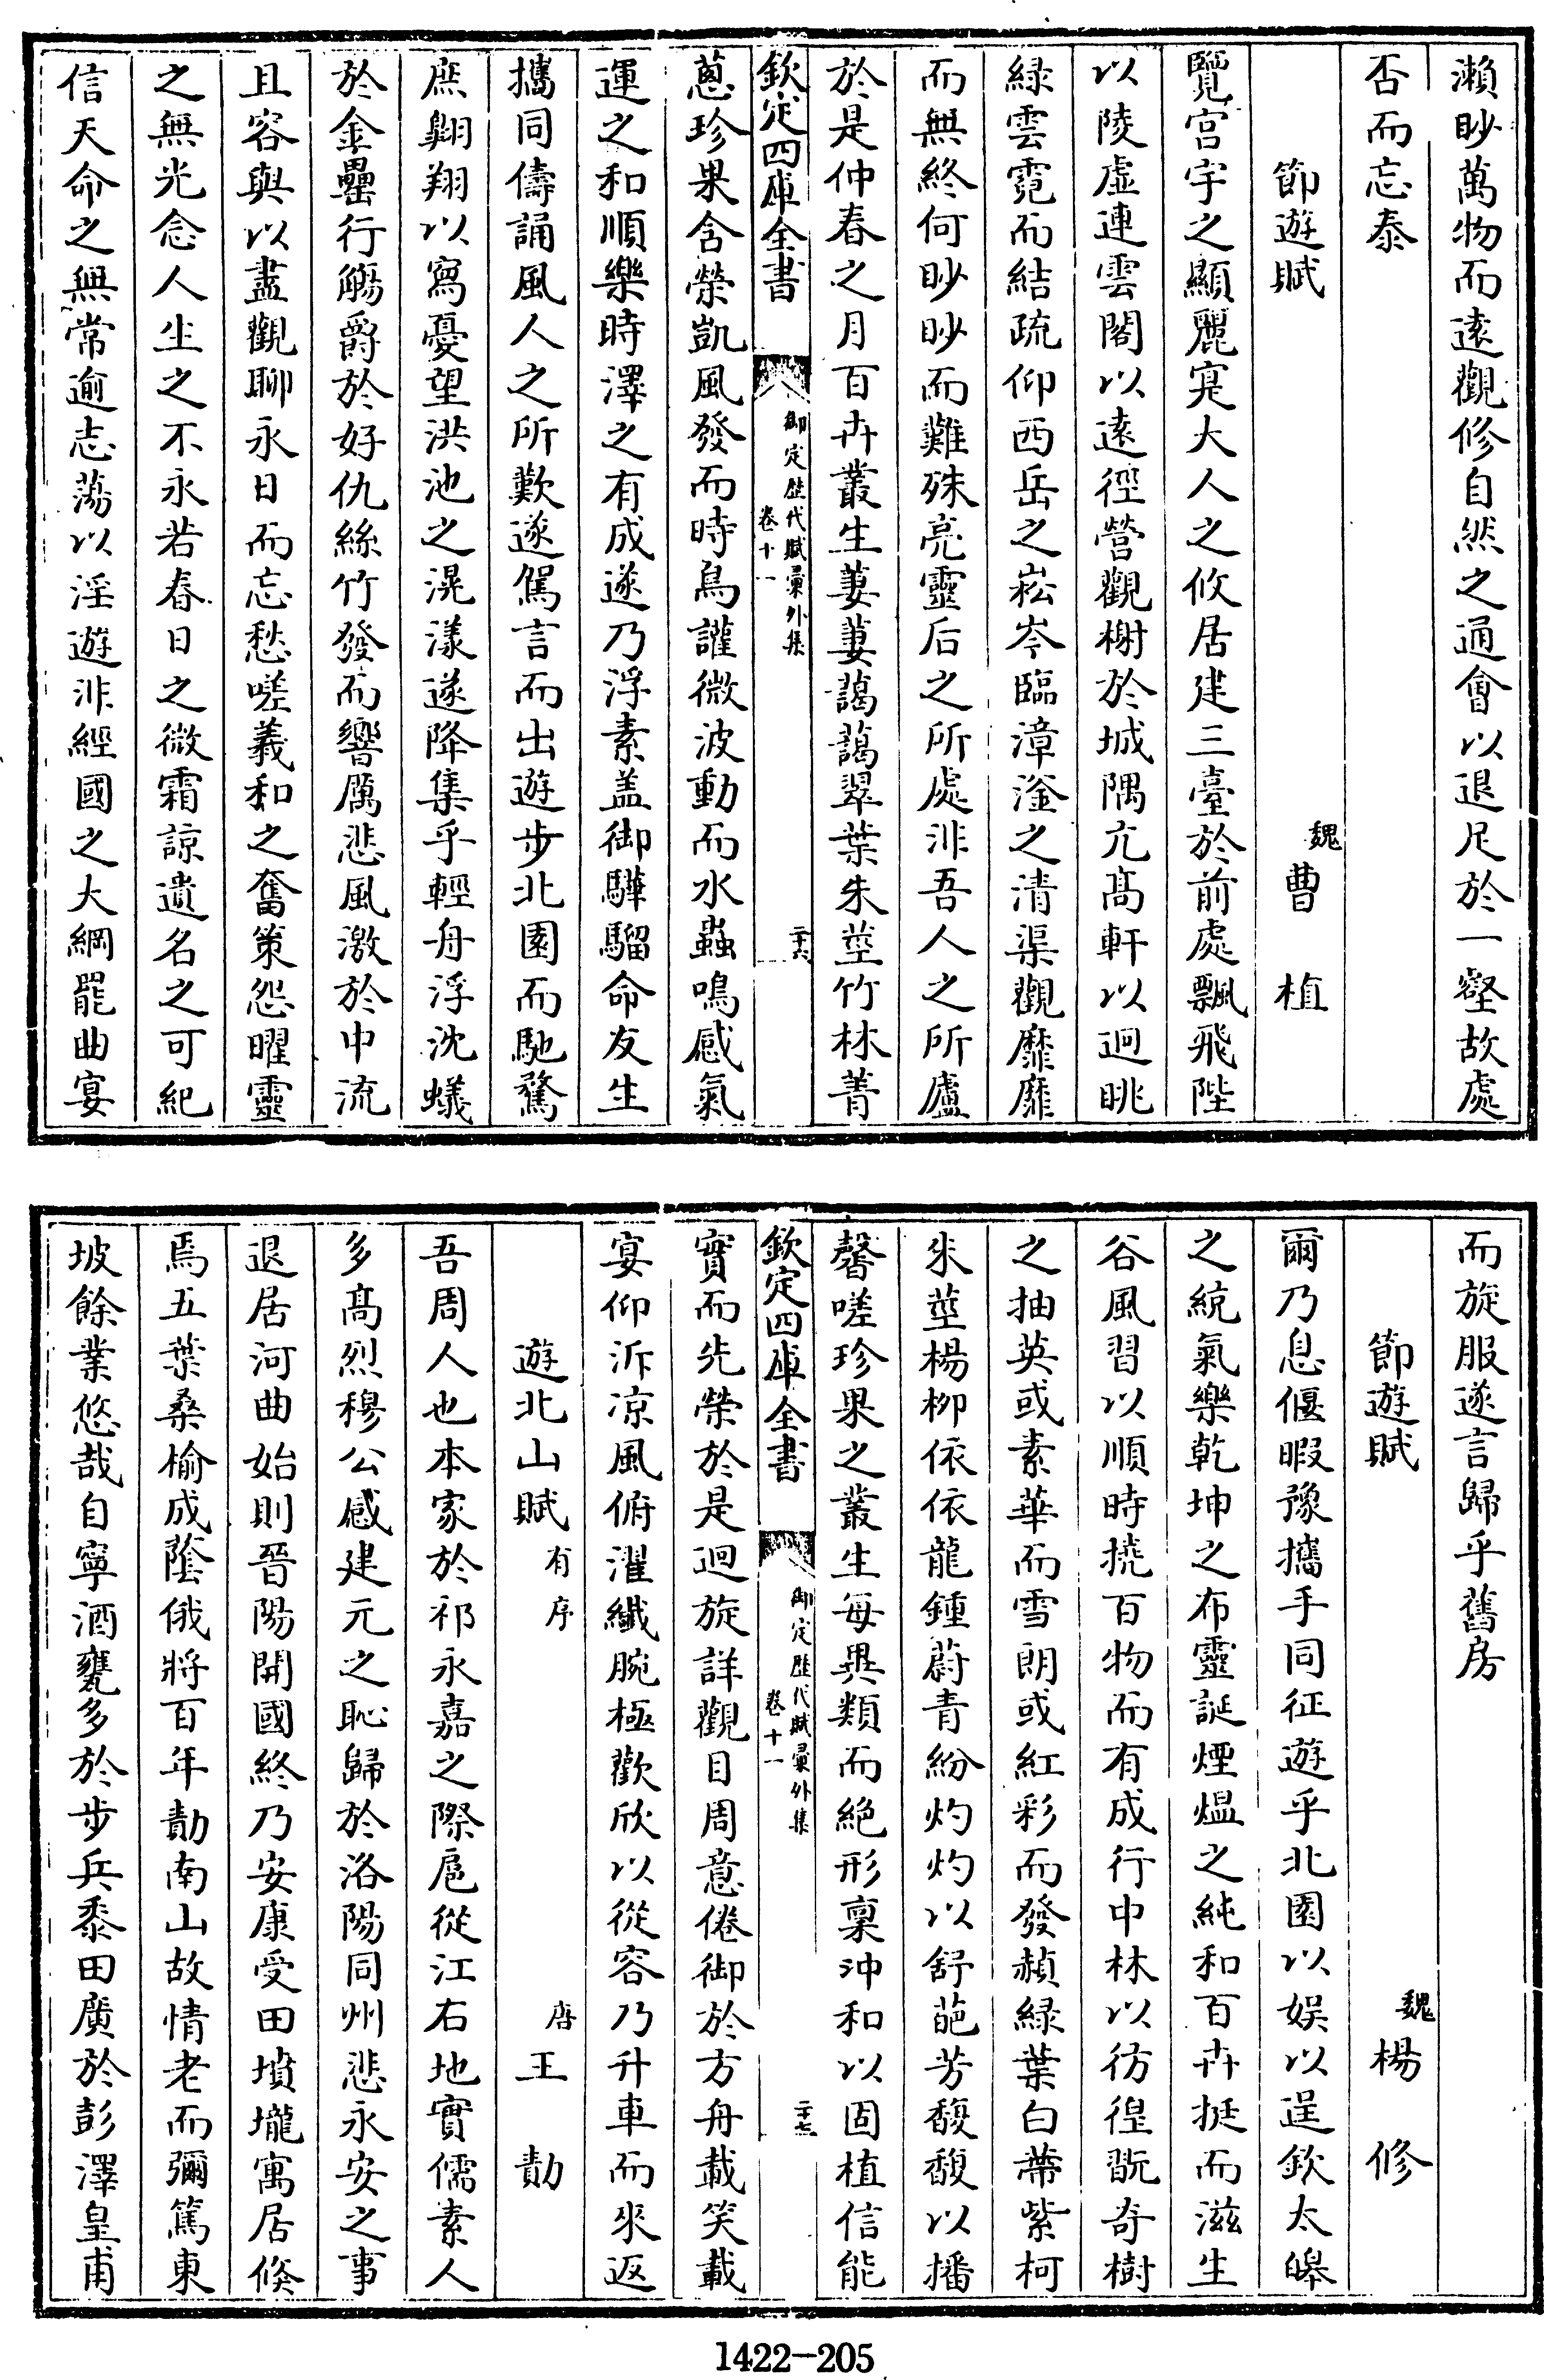 瀨眇萬物而逺觀修自然之通會以退足於一壑故處
否而忘泰
節遊賦
魏曹植
覽宫宇之顯麗寔大人之攸居建三臺於前處飄飛陛
以陵虚連雲閣以逺徑營觀榭於城隅亢髙軒以迥眺
緑雲霓而結疏仰西岳之崧岑臨漳滏之清渠觀靡靡
而無終何眇眇而難殊亮靈后之所處非吾人之所廬
於是仲春之月百卉叢生萋萋藹藹翠葉朱莖竹林菁
欽定四庫全書
御定歴代賦彚外集
卷十一
二十六
葱珍果含榮凱風發而時鳥讙微波動而水蟲鳴感氣
運之和順樂時澤之有成遂乃浮素盖御驊騮命友生
攜同儔誦風人之所歎遂駕言而出遊步北園而馳騖
庶翺翔以寫憂望洪池之滉漾遂降集乎輕舟浮沈蟻
於金罍行觴爵於好仇絲竹發而響厲悲風激於中流
且容與以盡觀聊永日而忘愁嗟羲和之奮策怨曜靈
之無光念人生之不永若春日之微霜諒遺名之可紀
信天命之無常逾志蕩以淫遊非經國之大綱罷曲宴
而旋服遂言歸乎舊房
節遊賦
魏楊修
爾乃息偃暇豫攜手同征遊乎北園以娱以逞欽太皥
之統氣樂乾坤之布靈誕煙煴之純和百卉挺而滋生
谷風習以順時撓百物而有成行中林以彷徨翫奇樹
之抽英或素華而雪朗或紅彩而發赬緑葉白蔕紫柯
朱莖楊柳依依龍鍾蔚青紛灼灼以舒葩芳馥馥以播
馨嗟珍果之叢生每異類而絶形稟沖和以固植信能
欽定四庫全書
御定歴代賦彚外集
卷十一
二十七
實而先榮於是迥旋詳觀目周意倦御於方舟載笑載
宴仰泝凉風俯濯纎腕極歡欣以從容乃升車而來返
遊北山賦有序
唐王勣
吾周人也本家於祁永嘉之際扈從江右地實儒素人
多髙烈穆公感建元之恥歸於洛陽同州悲永安之事
退居河曲始則晉陽開國終乃安康受田墳壠寓居倐
焉五葉桑榆成蔭俄將百年勣南山故情老而彌篤東
坡餘業悠哉自寧酒甕多於步兵黍田廣於彭澤皇甫
1422-205